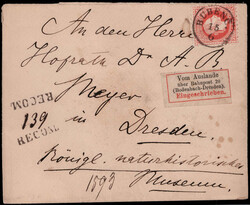 An den Herrn
Hofrath Dr. A B
Meyer
in
Dresden
Königl. naturhistorisches
Museum
1893
Vom Auslande
über Bahnpost
(Bodenbach-Dresden).
Eingeschrieben.
RECOM
139
RECOM